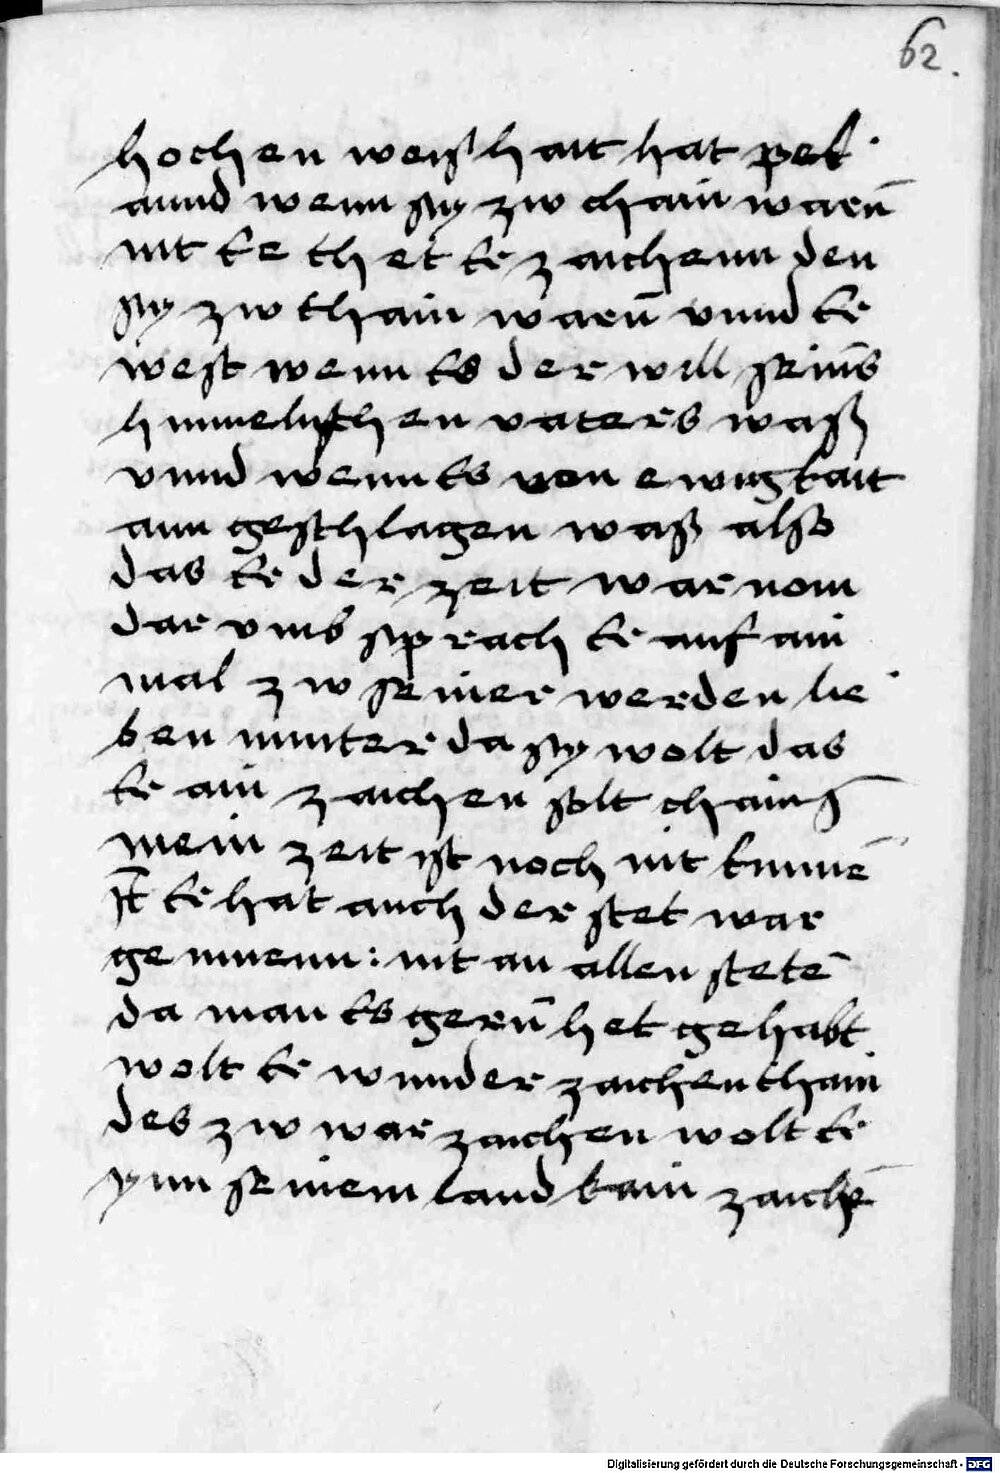 62.
hochen weißhait hat pek
annd wenn sy zw chain warn̄
nit Er thet Er zaichenn den
sy zw thain warn̄ vnnd Er
west wenn Es der will seins̄
himmelischen vaters waß
vnnd wenn Es von ewigkait
ann geschlagen waß also
das Er der zeit war nom
dar vmb sprach Er auf ain
mal zw seiner werden lie
ben muter da sy wolt das
Er ain zaichen solt chain
mein zeit ist noch nit kumē
Er hat auch der stet war
genumenn: nit an allen stetē
da man Es gern̄ het gehabt
wolt Er wunder zaichen thain
des zw war zaichen wolt Er
ynn seinem land kain zaichē
Digitalisierung gefördert durch die Deutsche Forschungsgemeinschaft - DFG